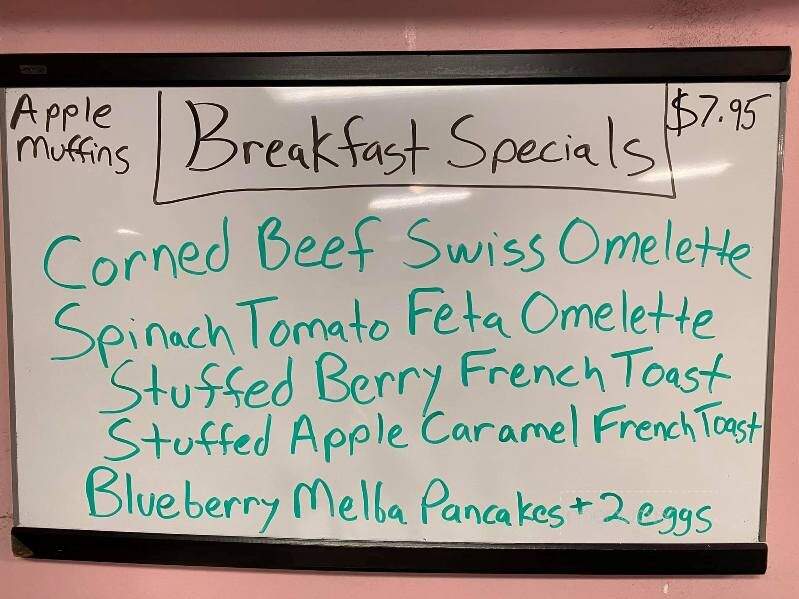 Apple
Muffins
Breakfast Specials
$7.95
Corned Beef Swiss Omelette
Spinach Tomato Feta Omelette
Stuffed Berry French Toast
Stuffed Apple Caramel French Toast
Blueberry Melba Pancakes + 2 eggs